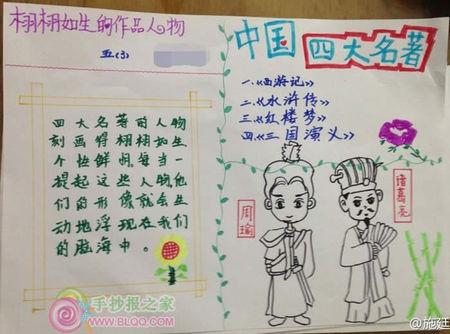 栩栩如生的作品人物
五(3)
四大名著的人物
刻画得栩栩如生
个性鲜明,每当一
提起这些人物他
们的形像就会生
动地浮现在我们
的脑海中。
中国四大名著
一.《西游记》
二.《水浒传》
三.《红楼梦》
四.《三国演义》
周瑜
诸葛亮
手抄报之家
WWW.BLQQ.COM
@施廷